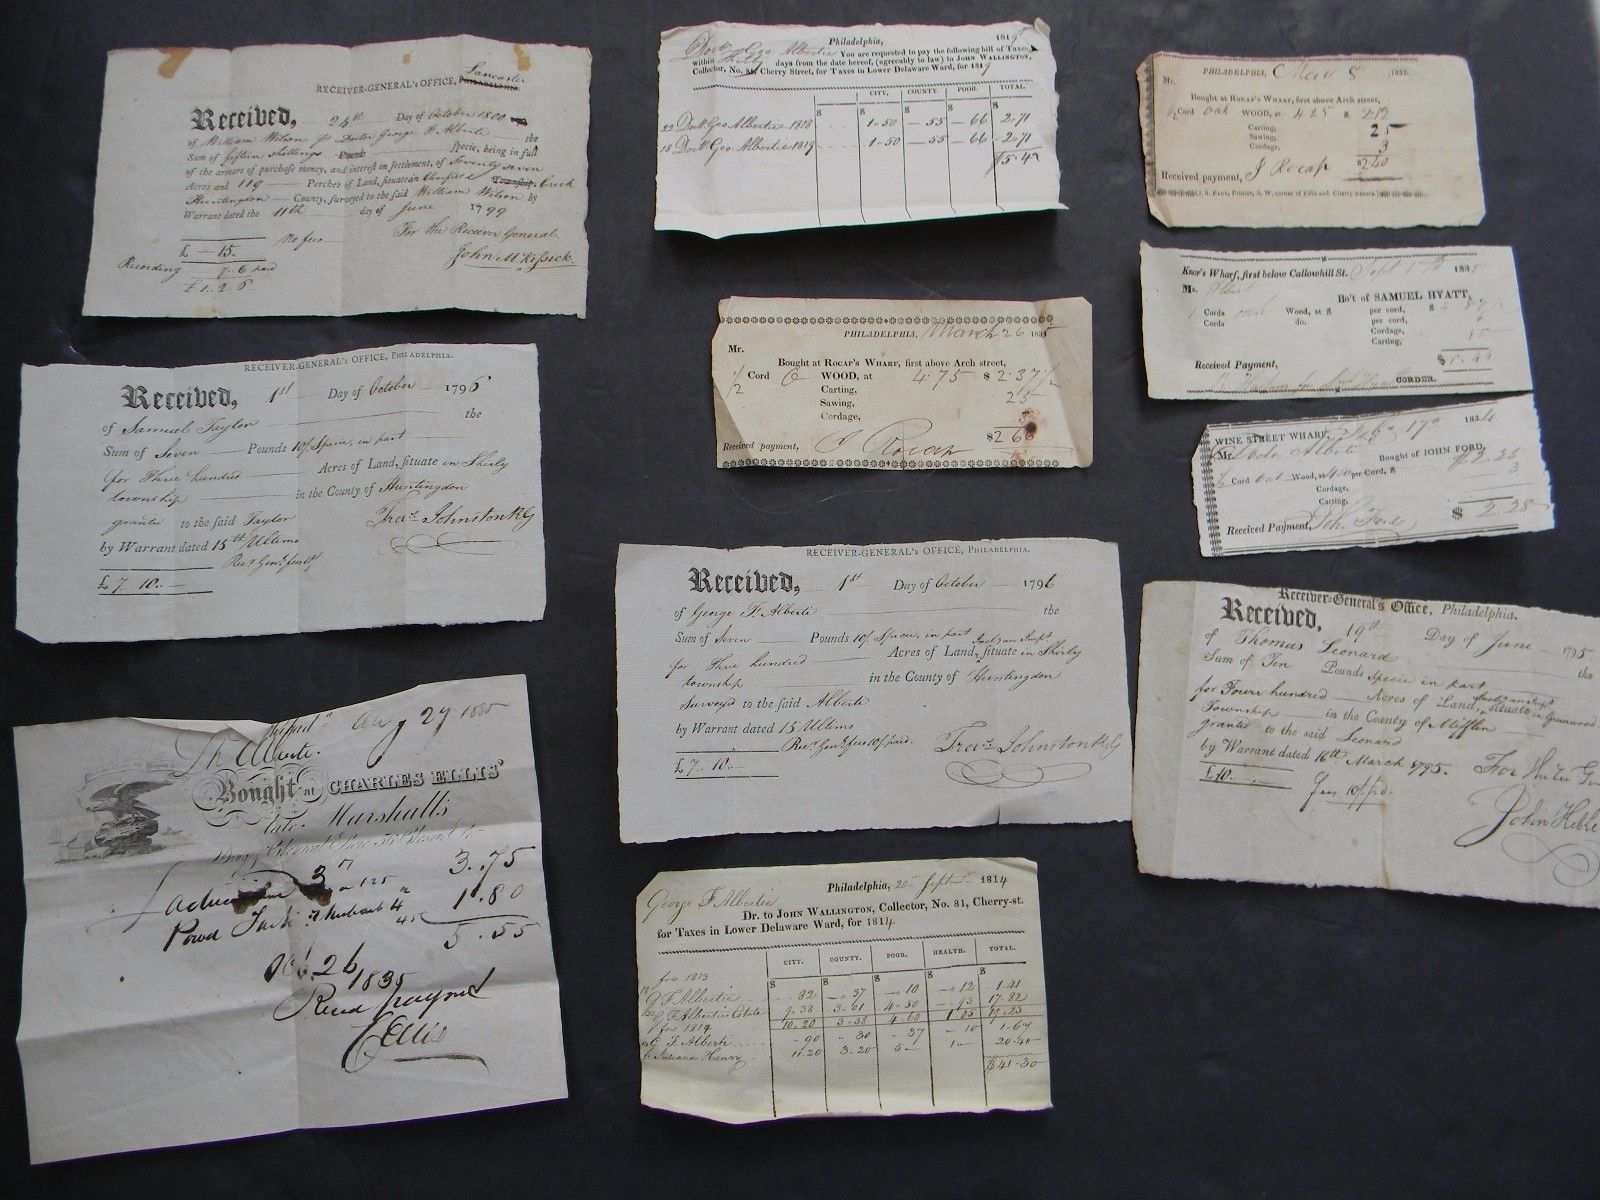 RECEIVER-GENERAL's OFFICE, PHILADELPHIA Lancaster
Received, 24th Day of October 1800
of William Wilson Doctor George F. Alberti the
Sum of fifteen shillings Pounds Specie, being in full
of the arrears of purchase money, and interest on settlement, of Seventy seven
Acres and 119 Perches of Land, situate on Clearfield Township, Creek
Huntington County, surveyed to the said William Wilson by
Warrant dated the 11th day of June 1799
no fees For the Receiver General.
£ - 15. John McKissick.
Recording 7.6 paid
£1.2.6
RECEIVER-GENERAL's OFFICE, PHILADELPHIA.
Received, 1st Day of October 1796
of Samuel Taylor the
Sum of Seven Pounds 10/ Specie, in part
for Three hundred Acres of Land, situate in Shirly
township in the County of Huntingdon
granted to the said Taylor
by Warrant dated 15th Ultimo Fras. Johnston RG
£7. 10.
Augt 27 1835
Dr. Alberti.
Bought at CHARLES ELLIS'
late Marshalls
3.75
1.80
5.55
Oct. 26 1835
Recd payment
C Ellis
Philadelphia, 1819
Doct. Geo Albertie You are requested to pay the following bill of Taxes
within Thirty days from the date hereof, (agreeably to law) to JOHN WALLINGTON,
Collector, No. 81, Cherry Street, for Taxes in Lower Delaware Ward, for 1819
CITY. COUNTY. POOR. TOTAL.
$ $ $ $
22 Doct. Geo Albertie 1818 1.50 55 66 2.71
18 Doct. Geo. Albertie 1819 1.50 55 66 2.71
$5.42
PHILADELPHIA, March 26 1835
Mr.
Bought at ROCAP'S WHARF, first above Arch street,
1/2 Cord O WOOD, at 4.75 $ 2.37 1/2
Carting, 25
Sawing,
Cordage,
$2 66
Received payment, J Rocap
RECEIVER-GENERAL's OFFICE, PHILADELPHIA.
Received, 1st Day of October 1796
of George F. Alberti the
Sum of Seven Pounds 10/ Specie, in part
for Three hundred Acres of Land, situate in Shirly
township in the County of Huntingdon
surveyed to the said Alberti
by Warrant dated 15 Ultimo
Recr Genls fees 10/ paid. Fras. Johnston RG
£7. 10.
Philadelphia, 20 Septemr 1814
George F Albertie
Dr. to JOHN WALLINGTON, Collector, No. 81, Cherry-st.
for Taxes in Lower Delaware Ward, for 1814
CITY. COUNTY. POOR. HEALTH. TOTAL.
$ $ $ $ $
for 1813
G F Albertie 82 37 10 12 1.41
G F Alberties Estate 9.38 3.01 4.50 93 17.82
10.20 3.38 4.60 1.05 19.23
for 1814
G. F. Albertie 90 30 37 10 1.67
Juliana Henry 11.20 3.20 5 1 20.40
$41.30
PHILADELPHIA, May 8 1835
Mr.
Bought at ROCAP'S WHARF, first above Arch street,
1/2 Cord oak WOOD, at 4 25 $ 2.12
Carting, 25
Sawing,
Cordage, 3
$2.40
Received payment, J Rocap
J. S. PAGE, Printer, S. W. corner of Fifth and Cherry streets.
Knor's Wharf, first below Callowhill St. Sept 17th 1835
Mr. Albert Bo't of SAMUEL HYATT,
1 Cords oak Wood, at $ per cord, $
Cords do. per cord,
Cordage,
Carting,
$5.44
Received Payment,
CORDER.
WINE STREET WHARF, 17th 1834
Mr. Doctor Alberti Bought of JOHN FORD,
1/2 Cord oak Wood, at per Cord, $ 2.25
Cordage, 3
Carting,
Received Payment, John Ford $ 2.28
Receiver-General's Office, Philadelphia.
Received, 19th Day of June 1795
of Thomas Leonard the
Sum of Ten Pounds Specie in part
for Four hundred Acres of Land, situate in Greenwood
Township in the County of Mifflin
granted to the said Leonard
by Warrant dated 16th March 1795.
£10. Fees 10/ pd.
John